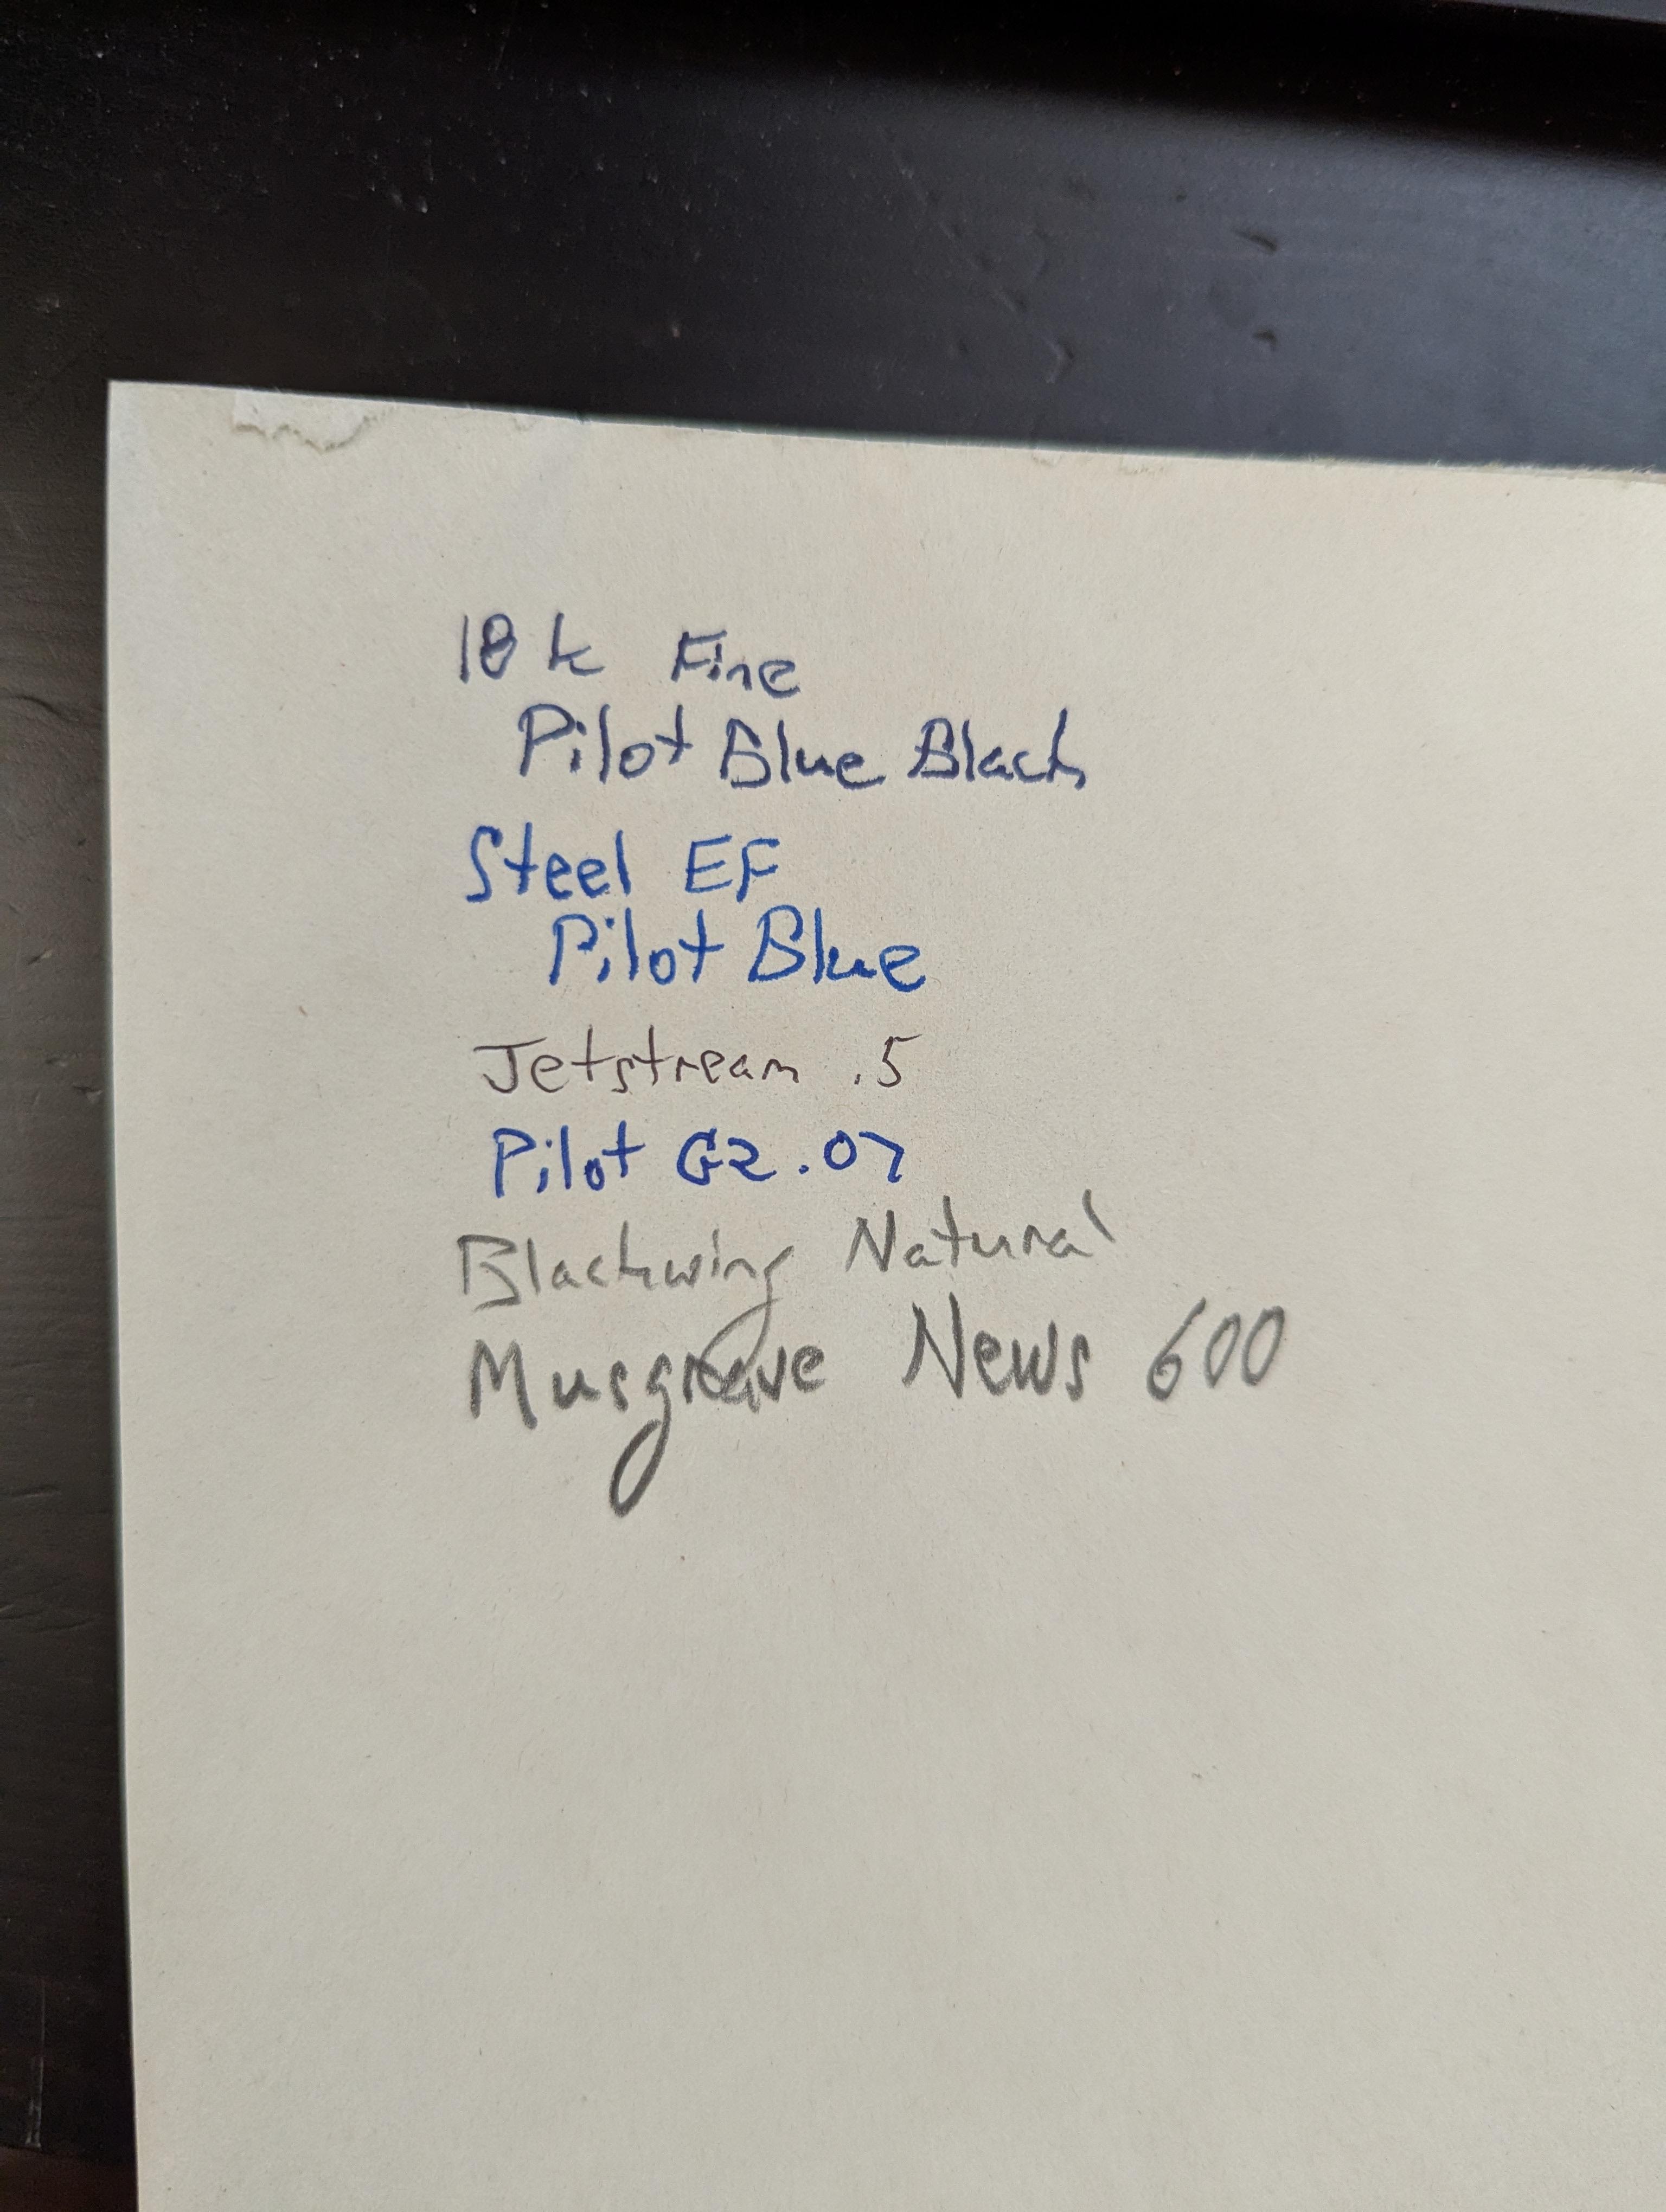 18k Fine
Pilot Blue Black
Steel EF
Pilot Blue
Jetstream .5
Pilot G2 .07
Blackwing Natural
Musgrave News 600